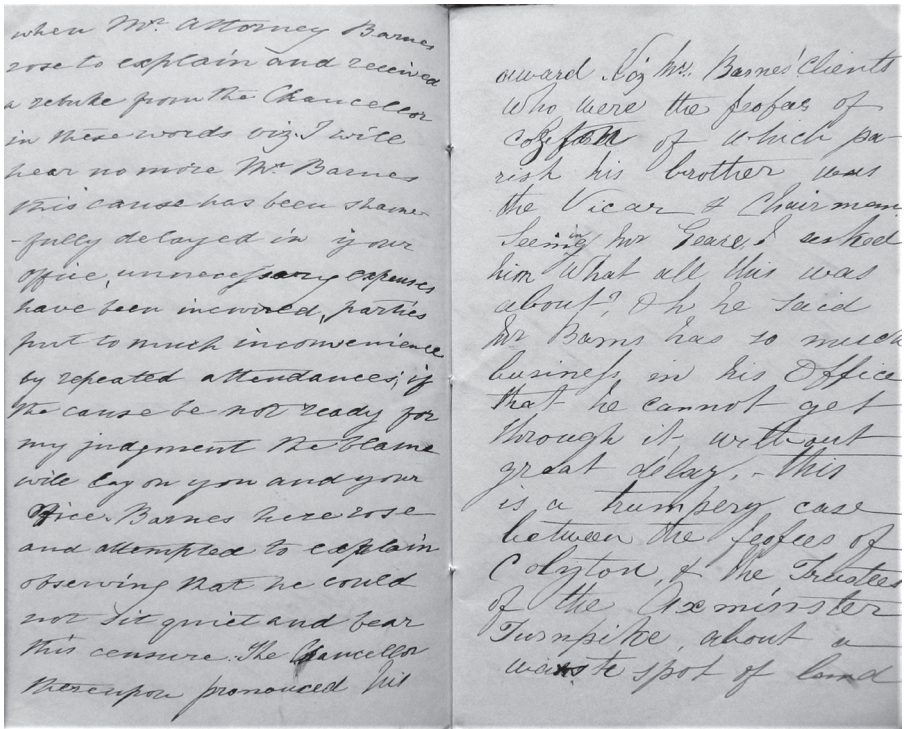 when Mr. Attorney Barnes
rose to explain and received
a rebuke from the Chancellor
in these words viz. I will
hear no more Mr Barnes
this cause has been shame-
-fully delayed in your
office, unnecessary expenses
have been incurred, parties
put to much inconvenience
by repeated attendances; if
the cause be not ready for
my judgment the blame
will lay on you and your
Office. Barnes here rose
and attempted to explain
observing that he could
not sit quiet and bear
this censure. The Chancellor
thereupon pronounced his
award Viz Mr. Barnes' Clients
who were the feofees of
of which pa-
rish his brother was
the Vicar & Chairman.
Seeing in Mr Geare, I asked
him what all this was
about? Oh he said
Mr Barns has so much
business in his Office
that he cannot get
through it, without
great delay, - this
is a trumpery case
between the feofees of
Colyton, & the Trustees
of the Axminster
Turnpike, about a
waste spot of land